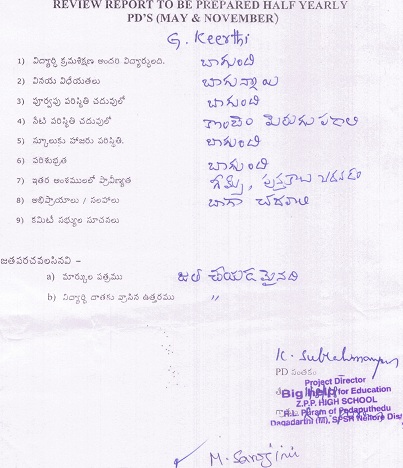 REVIEW REPORT TO BE PREPARED HALF YEARLY
PD'S (MAY & NOVEMBER)
G. Keerthi
1) విద్యార్థి క్రమశిక్షణ అందరి విద్యార్థులది. బాగుంది
2) వినయ విధేయతలు బాగున్నాయి
3) పూర్వపు పరిస్థితి చదువులో బాగుంది
4) నేటి పరిస్థితి చదువులో కొంచెం మెరుగు పడాలి
5) స్కూలుకు హాజరు పరిస్థితి. బాగుంది
6) పరిశుభ్రత బాగుంది
7) ఇతర అంశములలో ప్రావీణ్యత గేమ్స్, పుస్తకాలు చదవడం
8) అభిప్రాయాలు / సలహాలు బాగా చదవాలి
9) కమిటీ సభ్యుల సూచనలు
జతపరచవలసినవి –
a) మార్కుల పత్రము జత చేయడమైనది
b) విద్యార్థి దాతకు వ్రాసిన ఉత్తరము "
K. Subrahmanyam
PD సంతకం
Project Director
Big help for Education
Z.P.P. HIGH SCHOOL
R.L. Puram of Pedaputhedu
Dagadarthi (M), SPSR Nellore Dist
M. Sarojini